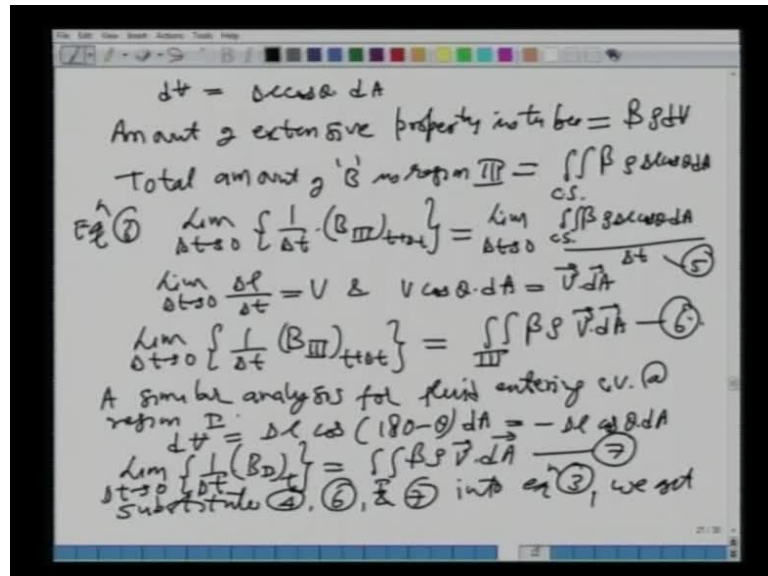 File Edit View Insert Actions Tools Help
dV = Δl cosθ dA
Amount of extensive property in tube = β ρ dV
Total amount of 'B' in region III = ∬ β ρ Δl cosθ dA
C.S.
Eqⁿ ③ Lim Δt→0 { 1/Δt · (B III) t+Δt } = Lim Δt→0 ∬ C.S. β ρ Δl cosθ dA / Δt ⑤
Lim Δt→0 Δl/Δt = V & V cosθ·dA = V⃗ dA⃗
Lim Δt→0 { 1/Δt (B III) t+Δt } = ∬ III β ρ V⃗·dA⃗ — ⑥
A similar analysis for fluid entering c.v. @
region I:
dV = Δl cos (180-θ) dA = - Δl cosθ dA
Lim Δt→0 { 1/Δt (B I) t } = ∬ I β ρ V⃗·dA⃗ — ⑦
Substitute ④, ⑥, & ⑦ into eqⁿ ③, we get